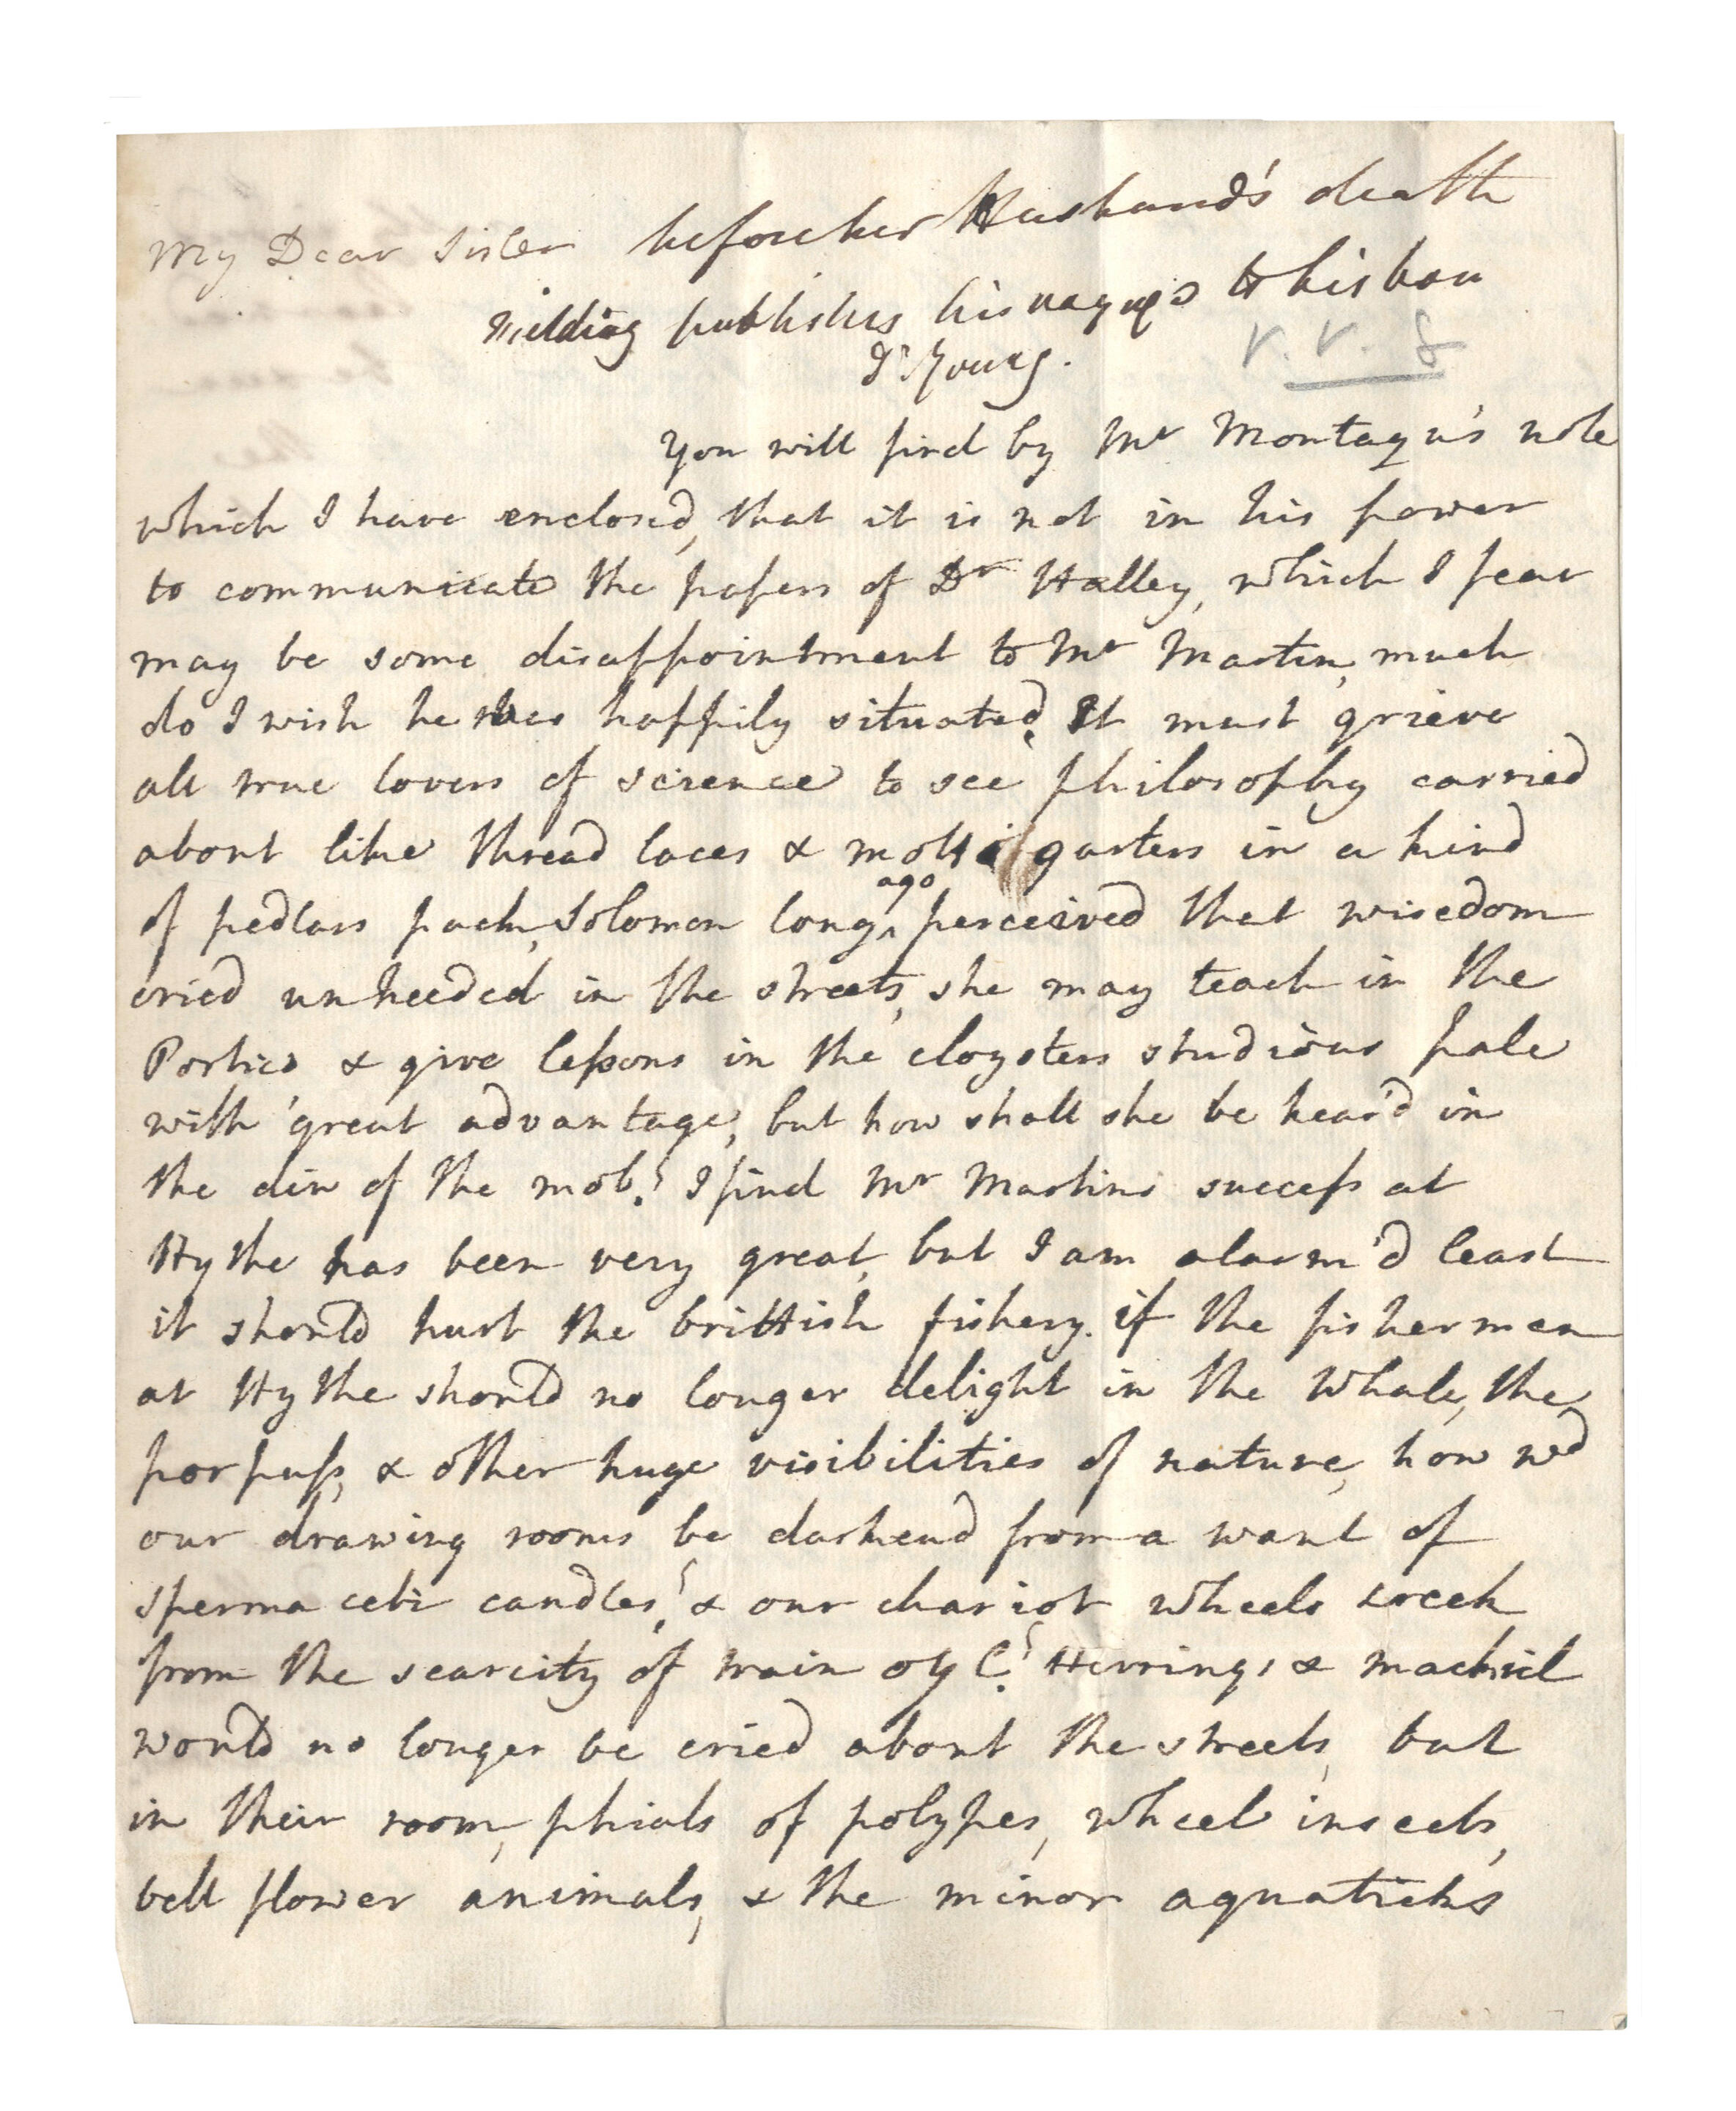 My Dear Sister before her Husband's death
Fielding publishes his voyages to Lisbon
Dr Young.
V. V. 8
You will find by Mr Montagu's note
which I have enclosed, that it is not in his power
to communicate the papers of Dr Halley, which I fear
may be some disappointment to Mr Martin, much
do I wish he was happily situated, It must grieve
all true lovers of science to see philosophy carried
about like thread laces & motto garters in a kind
of pedlars pack, Solomon long ago perceived that wisedom
cried unheeded in the streets, she may teach in the
Portico & give lessons in the cloysters studious pale
with great advantage, but how shall she be hear'd in
the din of the mob? I find Mr Martins success at
Hythe has been very great, but I am alarm'd least
it should hurt the brittish fishery. if the fishermen
at Hythe should no longer delight in the Whale, the
porpuss, & other huge visibilities of nature, how wd
our drawing rooms be darkend from a want of
sperma ceti candles? & our chariot wheels creek
from the scarcity of train oyl? Herrings & mackriel
would no longer be cried about the streets, but
in their room, phials of polypes, wheel insects,
bell flower animals, & the minor aquaticks